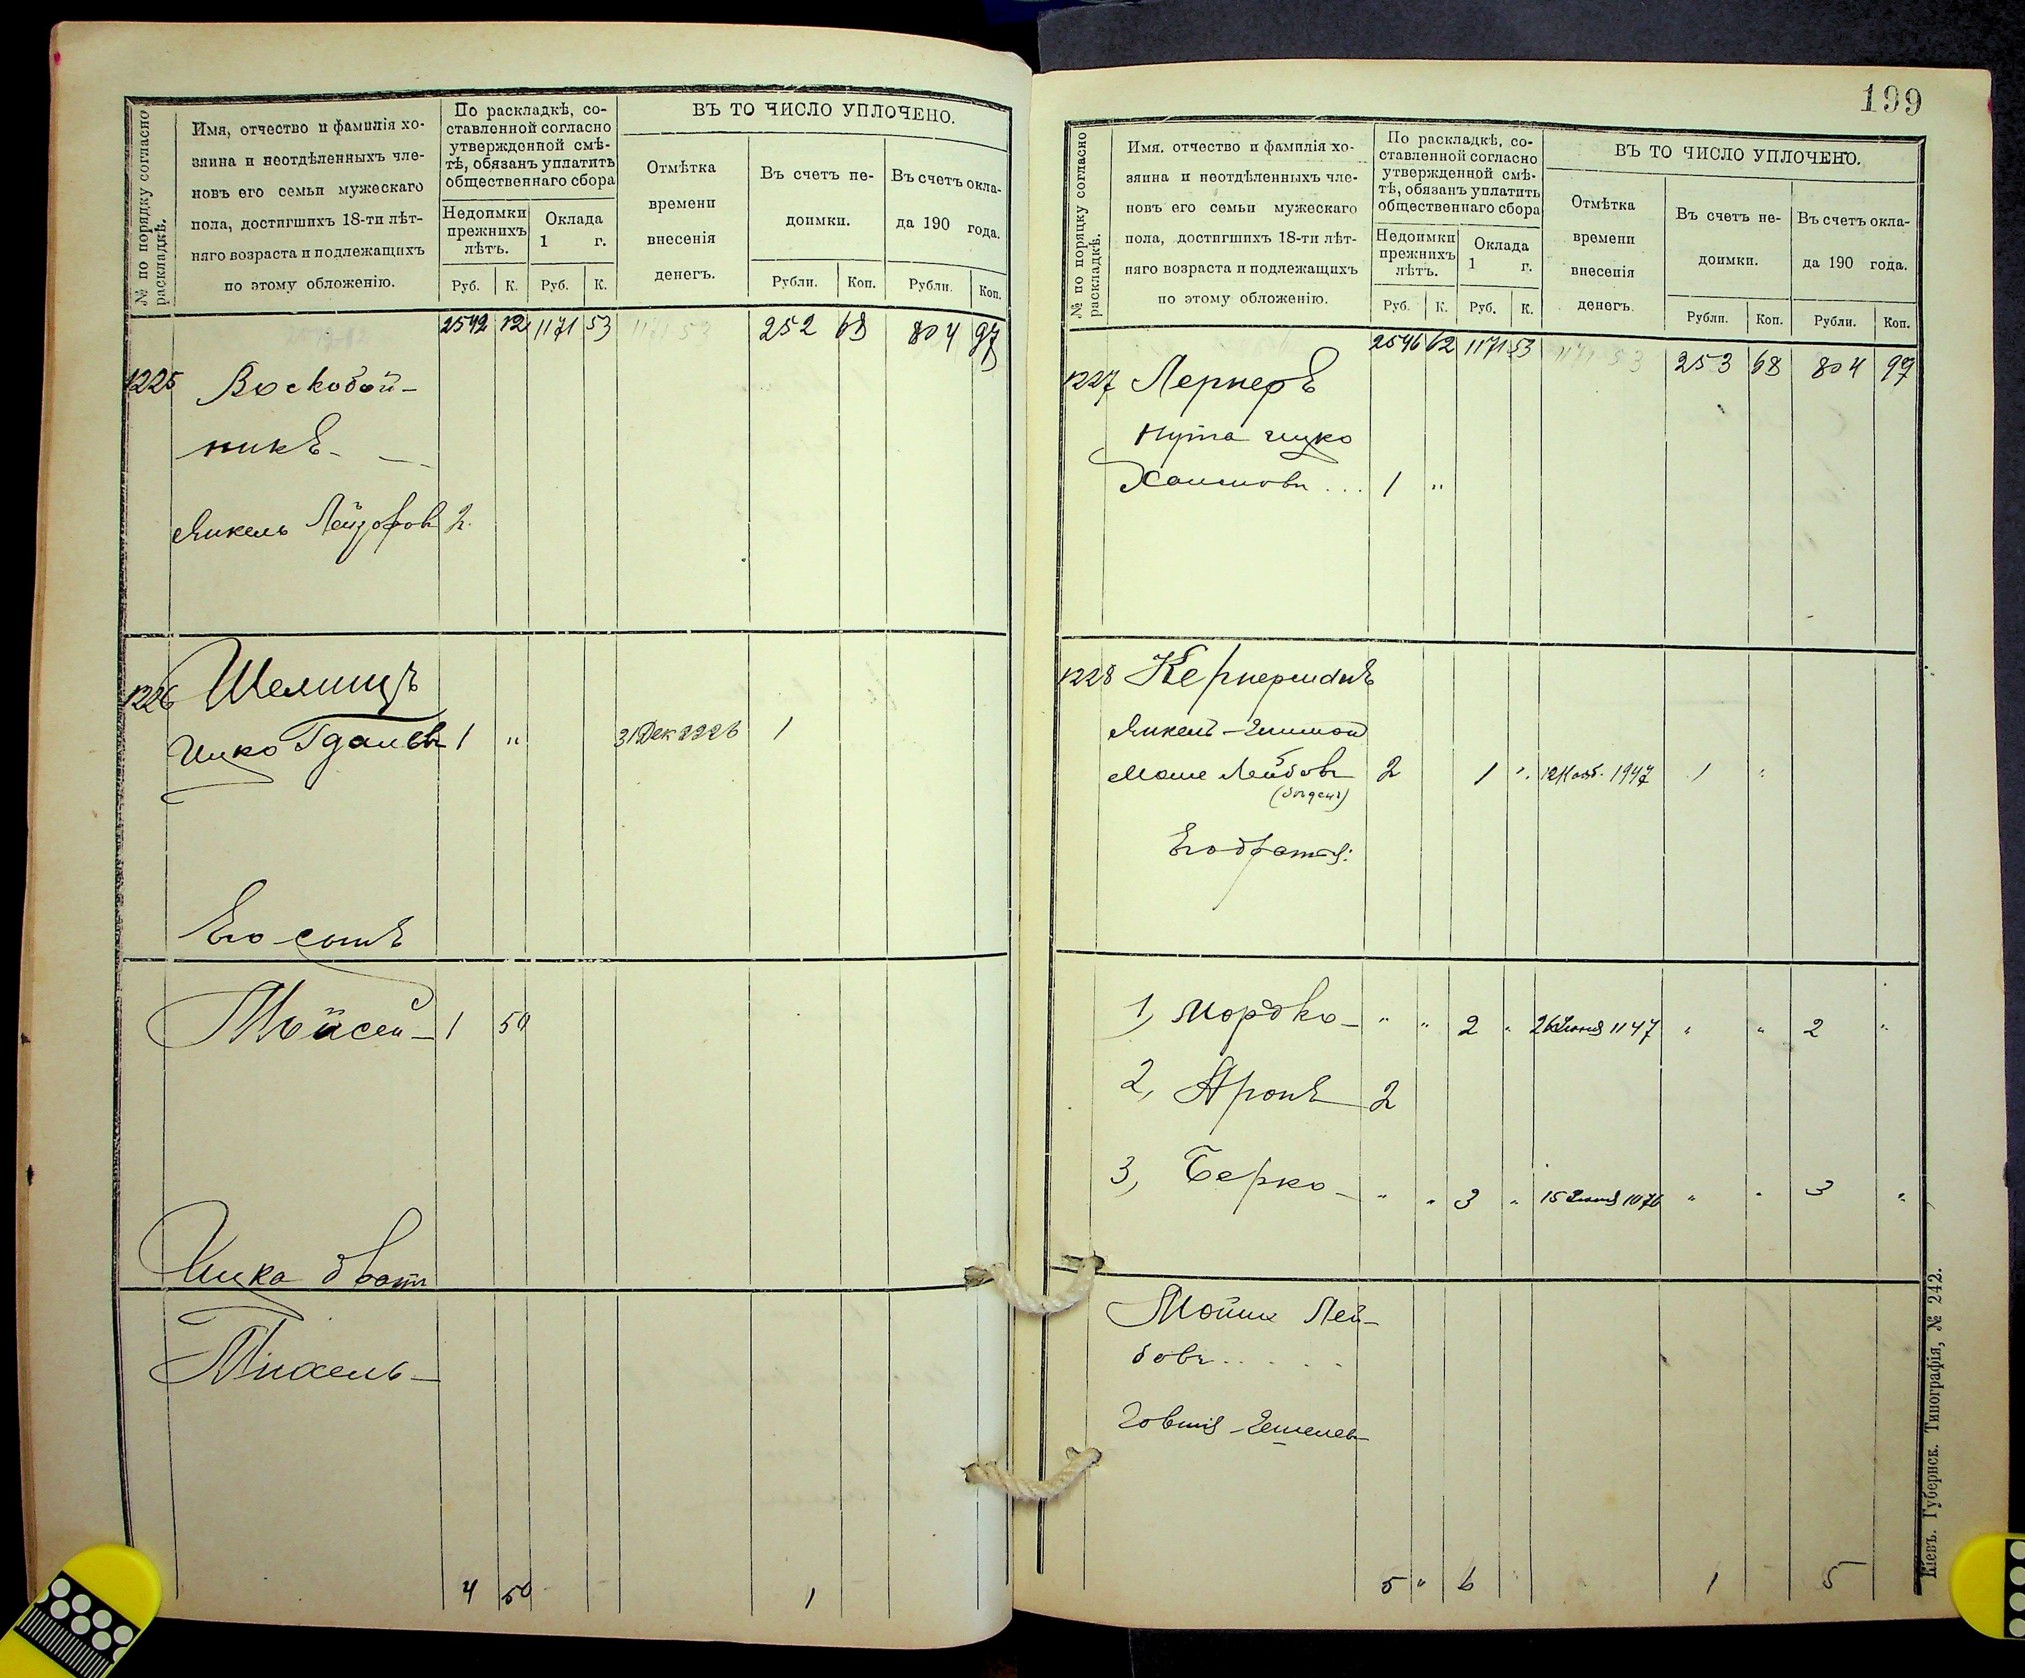 № по порядку согласно раскладкѣ.
Имя, отчество и фамилія хо-
зяина и неотдѣленныхъ чле-
новъ его семьи мужескаго
пола, достигшихъ 18-ти лѣт-
няго возраста и подлежащихъ
по этому обложенію.
По раскладкѣ, со-
ставленной согласно
утвержденной смѣ-
тѣ, обязанъ уплатить
общественнаго сбора
Недоимки прежнихъ лѣтъ.
Оклада 1 г.
Руб. К. Руб. К.
ВЪ ТО ЧИСЛО УПЛОЧЕНО.
Отмѣтка времени внесенія денегъ.
Въ счетъ не-доимки.
Въ счетъ окла-да 190 года.
Рубли. Коп. Рубли. Коп.
2542 12 1171 53 1171 53 252 68 804 97
1225 Воскобой-
никъ
Янкель Лейзоровъ 2
1226 Шелиицъ
Ицко Гдальев 1 " 31 Дек 2226 1
Его сынъ
Мойсей 1 50
Ицка братъ
Михель
4 50 1
199
№ по порядку согласно раскладкѣ.
Имя, отчество и фамилія хо-
зяина и неотдѣленныхъ чле-
новъ его семьи мужескаго
пола, достигшихъ 18-ти лѣт-
няго возраста и подлежащихъ
по этому обложенію.
По раскладкѣ, со-
ставленной согласно
утвержденной смѣ-
тѣ, обязанъ уплатить
общественнаго сбора
Недоимки прежнихъ лѣтъ.
Оклада 1 г.
Руб. К. Руб. К.
ВЪ ТО ЧИСЛО УПЛОЧЕНО.
Отмѣтка времени внесенія денегъ.
Въ счетъ не-доимки.
Въ счетъ окла-да 190 года.
Рубли. Коп. Рубли. Коп.
2546 62 1171 53 1171 53 253 68 804 97
1227 Лернеръ
Нута Ицко
Хаимовъ ... 1 "
1228
Янкель
Моше Лейбовъ 2 1 " 12 Нояб. 1947 1 "
Его братья:
1, Мордко " " 2 " 26 Іюня 1147 " " 2 "
2, Аронъ 2
3, Берко " " 3 " 15 1076 " " 3 "
Лей-
бовъ
5 " 6 " 1 5
Кіевъ. Губернск. Типографія, № 242.